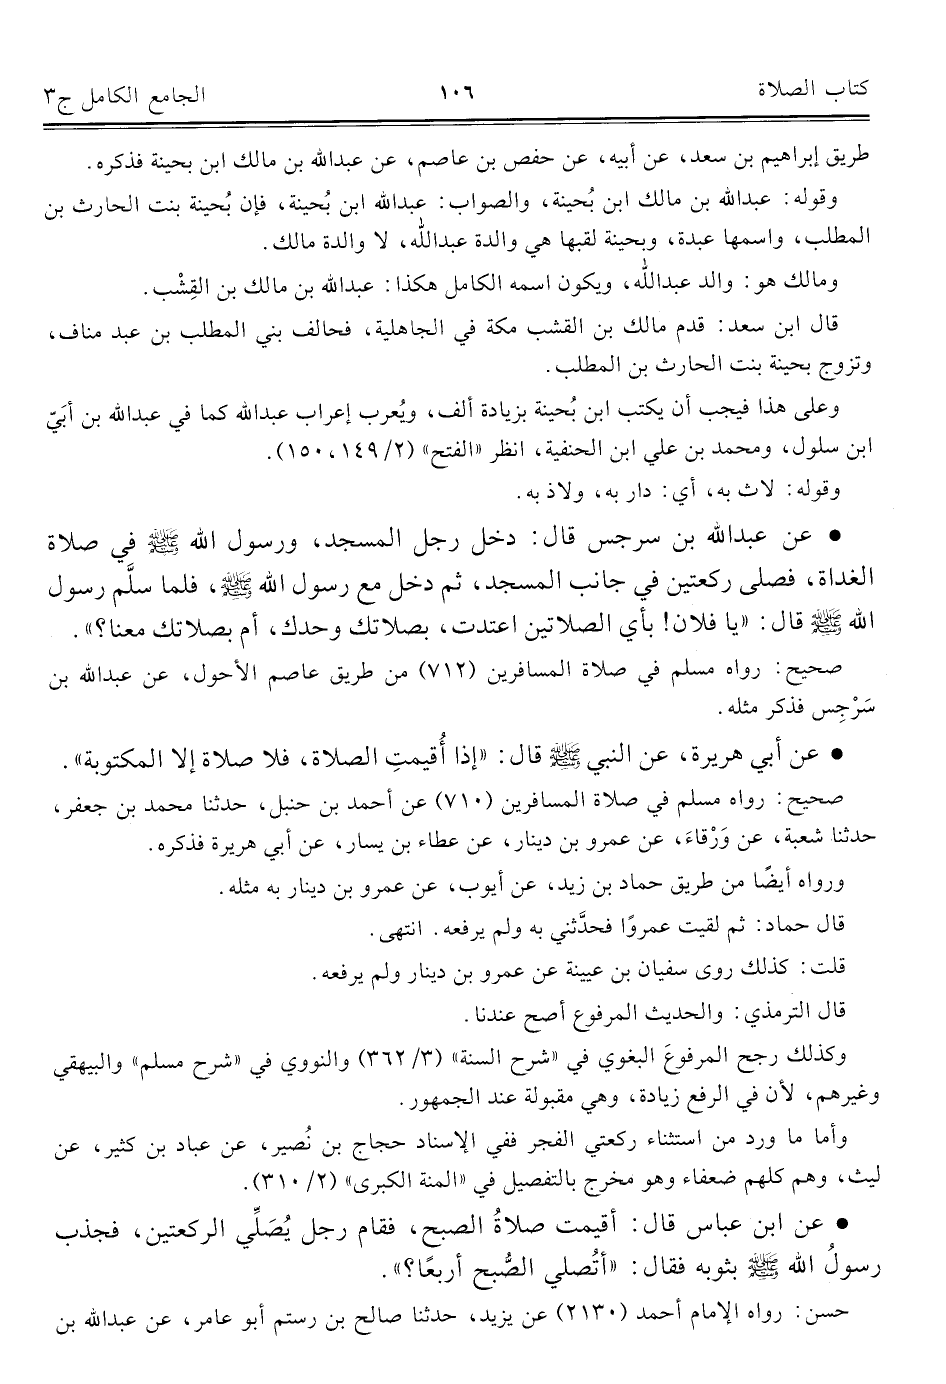 كتاب الصلاة ١٠٦ الجامع الكامل ج٣
طريق إبراهيم بن سعد، عن أبيه، عن حفص بن عاصم، عن عبدالله بن مالك ابن بحينة فذكره.
وقوله: عبدالله بن مالك ابن بُحينة، والصواب: عبدالله ابن بُحينة، فإن بُحينة بنت الحارث بن
المطلب، واسمها عبدة، وبحينة لقبها هي والدة عبدالله، لا والدة مالك.
ومالك هو: والد عبدالله، ويكون اسمه الكامل هكذا: عبدالله بن مالك بن القِشْب.
قال ابن سعد: قدم مالك بن القشب مكة في الجاهلية، فحالف بني المطلب بن عبد مناف،
وتزوج بحينة بنت الحارث بن المطلب.
وعلى هذا فيجب أن يكتب ابن بُحينة بزيادة ألف، ويُعرب إعراب عبدالله كما في عبدالله بن أبَيّ
ابن سلول، ومحمد بن علي ابن الحنفية، انظر «الفتح» (٢/ ١٤٩، ١٥٠).
وقوله: لاث به، أي: دار به، ولاذ به.
● عن عبدالله بن سرجس قال: دخل رجل المسجد، ورسول الله ﷺ في صلاة
الغداة، فصلى ركعتين في جانب المسجد، ثم دخل مع رسول الله ﷺ، فلما سلَّم رسول
الله ﷺ قال: «يا فلان! بأي الصلاتين اعتدت، بصلاتك وحدك، أم بصلاتك معنا؟».
صحيح: رواه مسلم في صلاة المسافرين (٧١٢) من طريق عاصم الأحول، عن عبدالله بن
سَرْجِس فذكر مثله.
● عن أبي هريرة، عن النبي ﷺ قال: «إذا أُقيمتِ الصلاة، فلا صلاة إلا المكتوبة».
صحيح: رواه مسلم في صلاة المسافرين (٧١٠) عن أحمد بن حنبل، حدثنا محمد بن جعفر،
حدثنا شعبة، عن وَرْقاءَ، عن عمرو بن دينار، عن عطاء بن يسار، عن أبي هريرة فذكره.
ورواه أيضًا من طريق حماد بن زيد، عن أيوب، عن عمرو بن دينار به مثله.
قال حماد: ثم لقيت عمروًا فحدَّثني به ولم يرفعه. انتهى.
قلت: كذلك روى سفيان بن عيينة عن عمرو بن دينار ولم يرفعه.
قال الترمذي: والحديث المرفوع أصح عندنا.
وكذلك رجح المرفوعَ البغوي في «شرح السنة» (٣/ ٣٦٢) والنووي في «شرح مسلم» والبيهقي
وغيرهم، لأن في الرفع زيادة، وهي مقبولة عند الجمهور.
وأما ما ورد من استثناء ركعتي الفجر ففي الإسناد حجاج بن نُصير، عن عباد بن كثير، عن
ليث، وهم كلهم ضعفاء وهو مخرج بالتفصيل في «المنة الكبرى» (٢/ ٣١٠).
● عن ابن عباس قال: أقيمت صلاةُ الصبح، فقام رجل يُصَلِّي الركعتين، فجذب
رسولُ الله ﷺ بثوبه فقال: «أتُصلي الصُّبح أربعًا؟».
حسن: رواه الإمام أحمد (٢١٣٠) عن يزيد، حدثنا صالح بن رستم أبو عامر، عن عبدالله بن